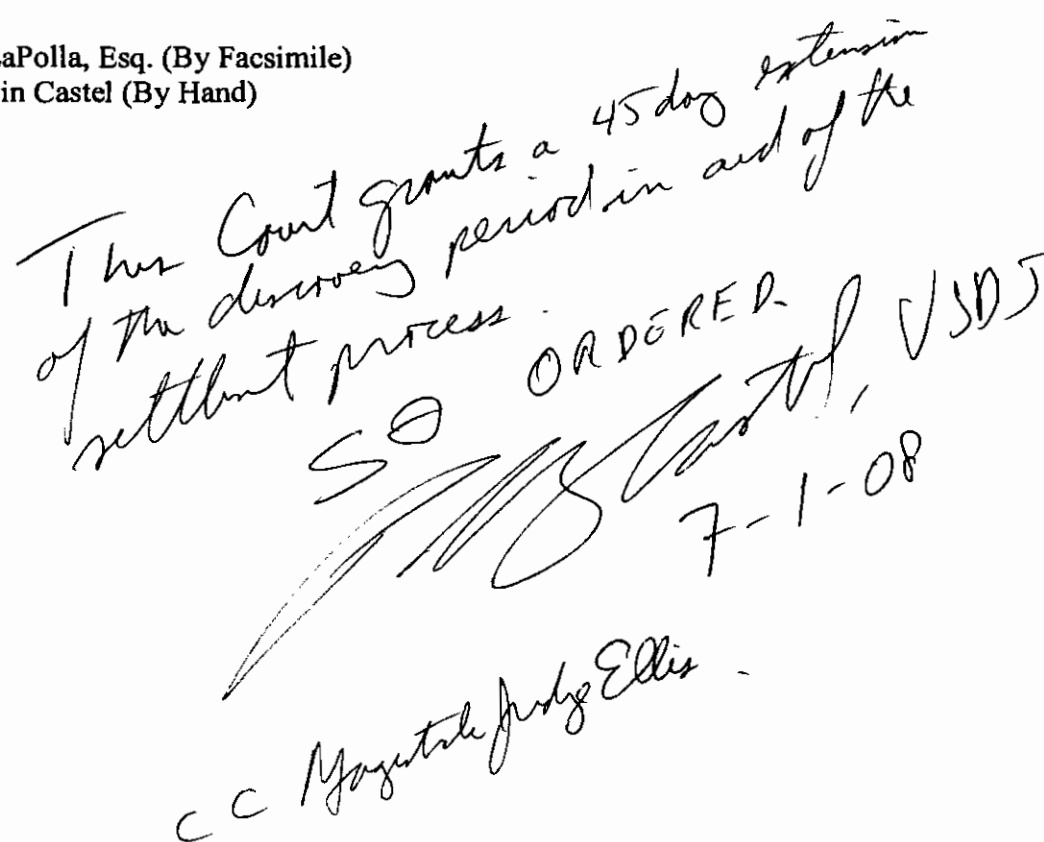 aPolla, Esq. (By Facsimile)
in Castel (By Hand)
This Court grants a 45 day extension
of the discovery period in aid of the
settlement process.
SO ORDERED.
Castel, USDJ
7-1-08
cc Magistrate Judge Ellis.